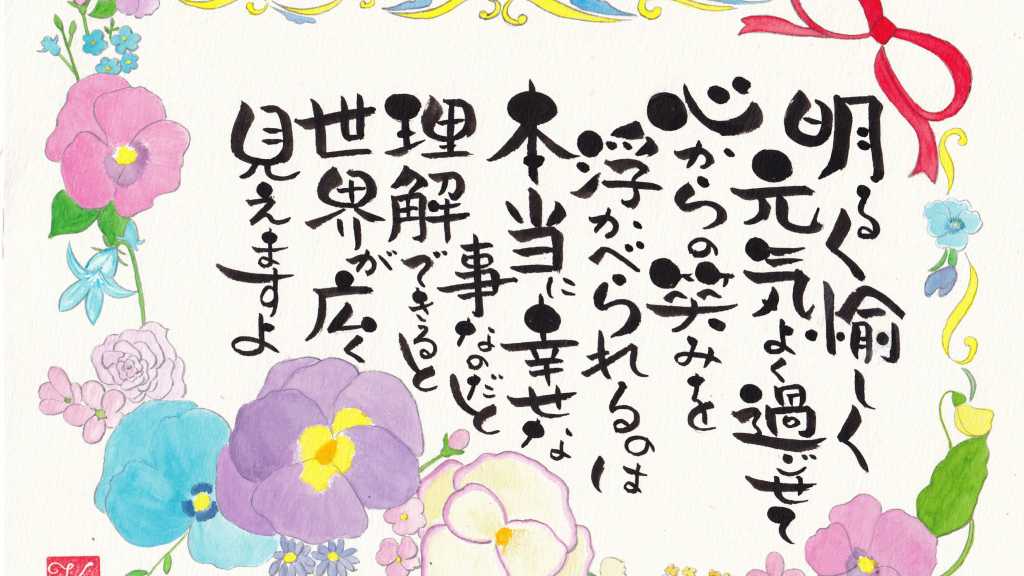 明るく愉しく
元気よく過ごせて
心からの笑みを
浮かべられるのは
本当に幸せな
事なのだと
理解できると
世界が広く
見えますよ